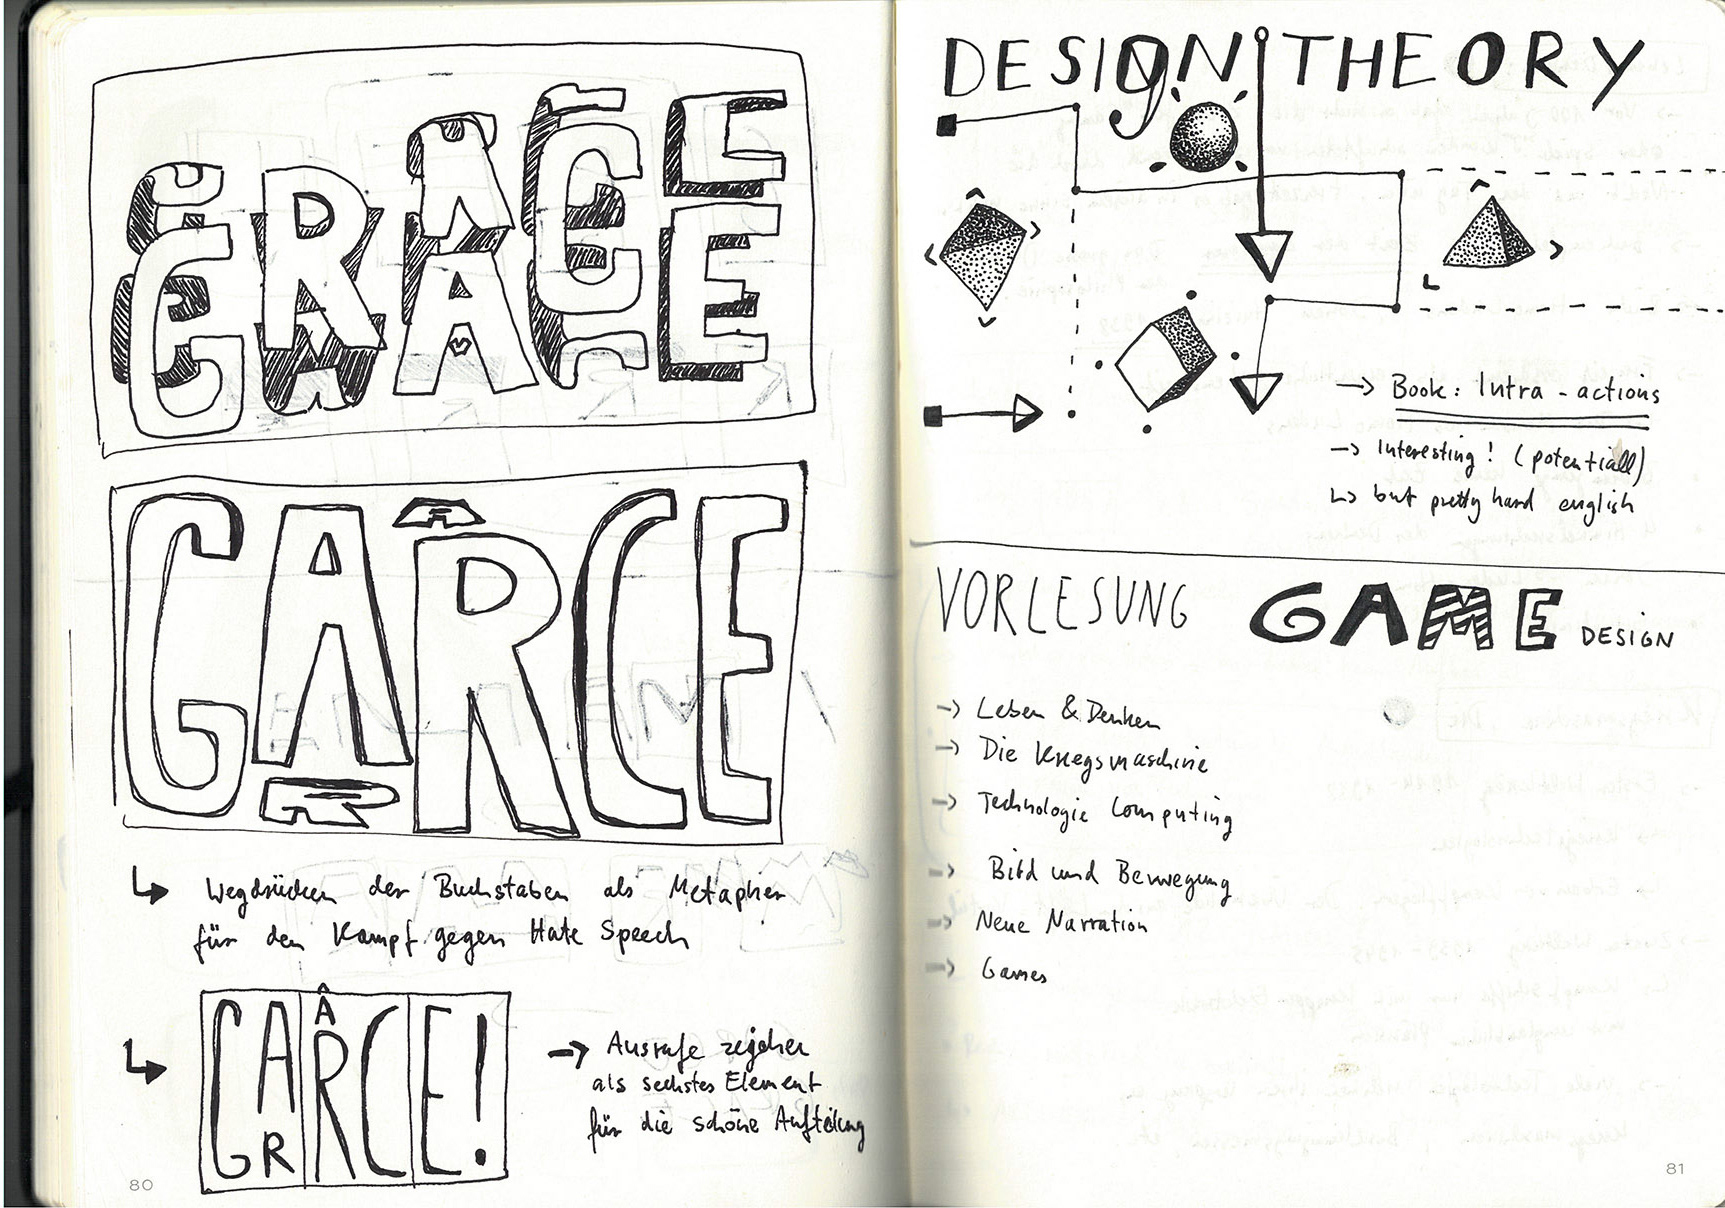 GRACE
GARCE
A
R
Wegdrücken der Buchstaben als Metapher
für den Kampf gegen Hate Speech
GARCE!
A
R
Ausrufe zeichen
als sechstes Element
für die schöne Aufteilung
80
DESIGN THEORY
Book: Intra-actions
Interesting! (potentiall)
but pretty hard english
VORLESUNG GAME DESIGN
Leben & Denken
Die Kriegsmaschine
Technologie Computing
Bild und Bewegung
Neue Narration
Games
81